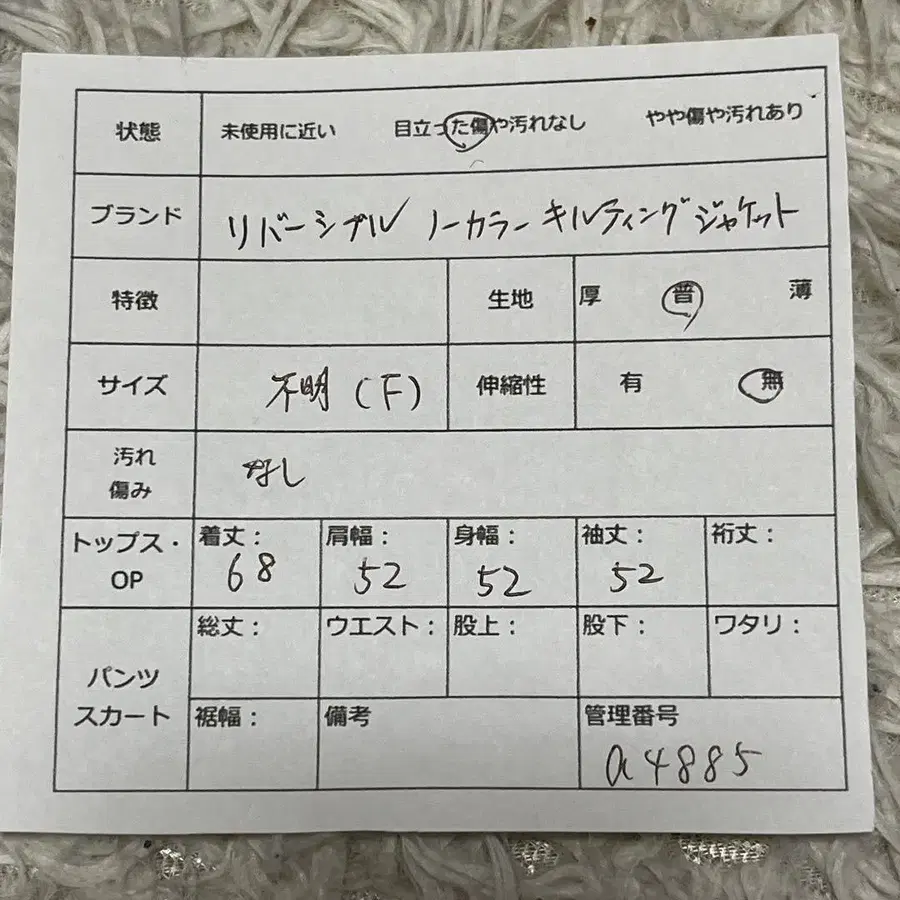 状態 未使用に近い 目立った傷や汚れなし やや傷や汚れあり
ブランド リバーシブル ノーカラーキルティングジャケット
特徴 生地 厚 普 薄
サイズ 不明(F) 伸縮性 有 無
汚れ
傷み
なし
トップス・
OP
着丈: 肩幅: 身幅: 袖丈: 裄丈:
68 52 52 52
パンツ
スカート
総丈: ウエスト: 股上: 股下: ワタリ:
裾幅: 備考 管理番号
a4885